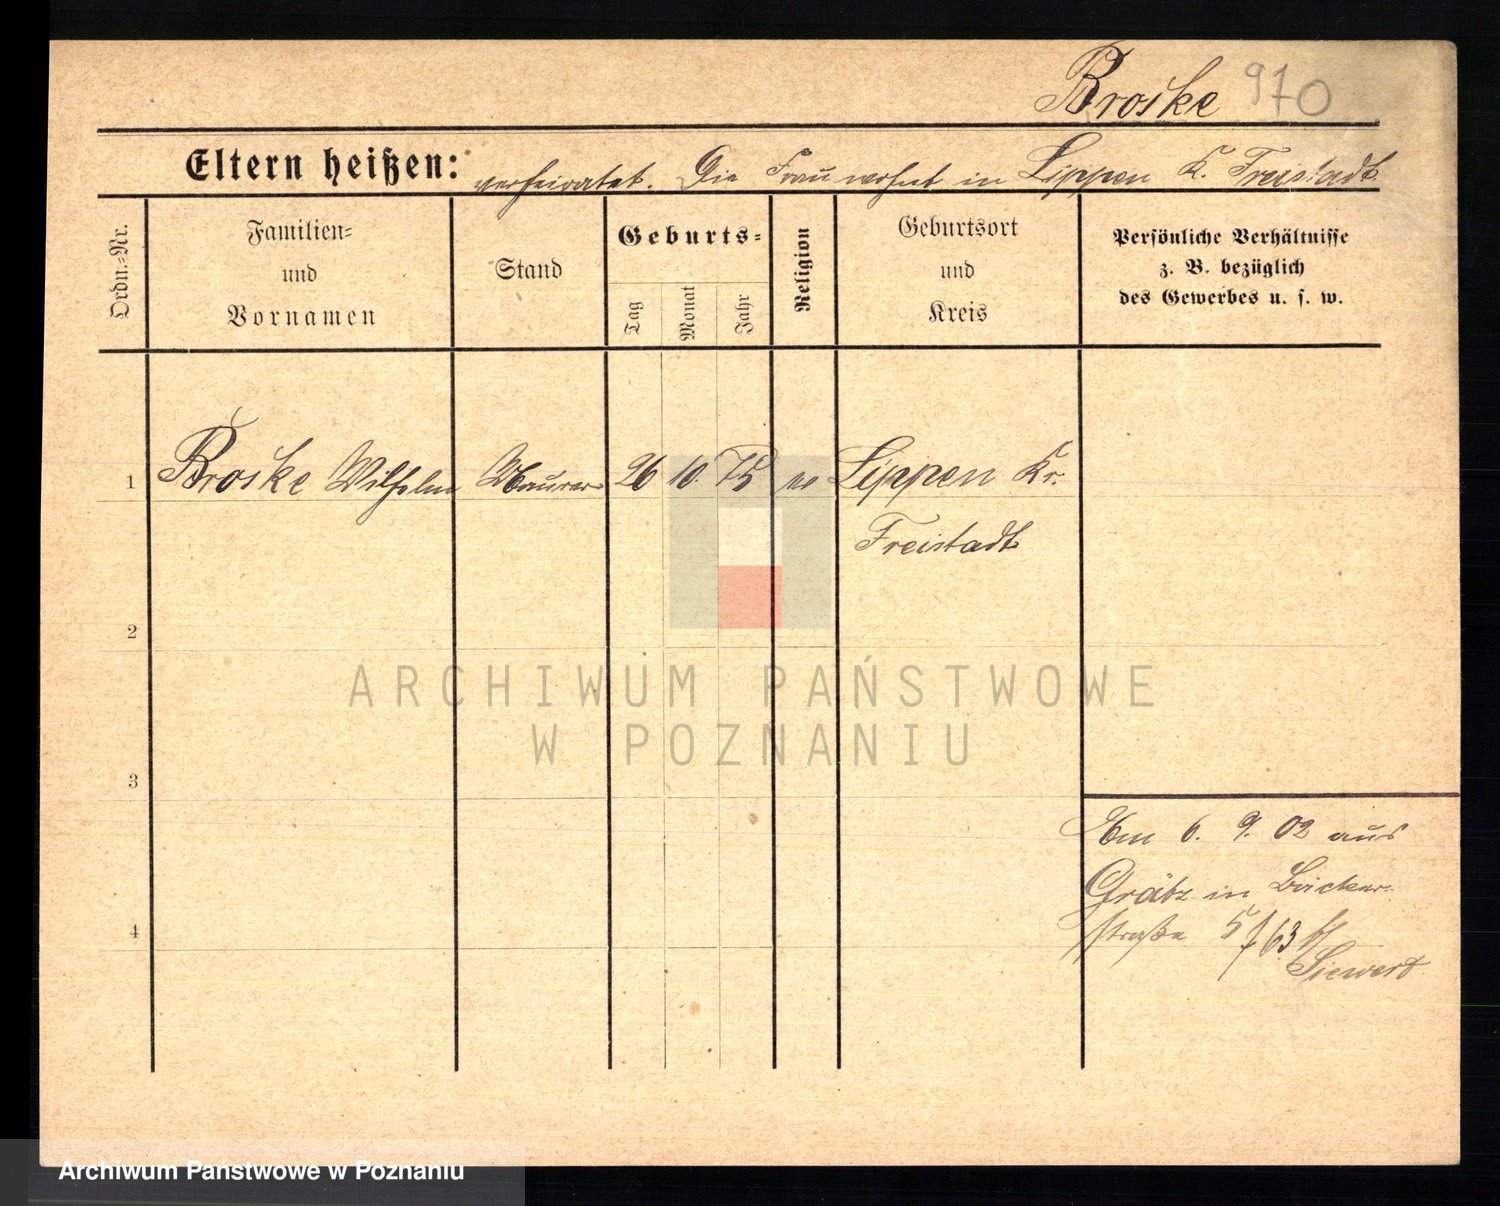 Broske 970
Eltern heißen: verheiratet. Die Frau wohnt in Lippen K. Freistadt
Ordn.=Nr.
Familien=
und
Vornamen
Stand
Geburts=
Tag
Monat
Jahr
Religion
Geburtsort
und
Kreis
Persönliche Verhältnisse
z. B. bezüglich
des Gewerbes u. s. w.
1 Broske Wilhelm Maurer 26 10. 75 Lippen Kr.
Freistadt
2
ARCHIWUM PAŃSTWOWE
W POZNANIU
3
Am 6. 9. 02 aus
Grätz in Bäcker
straße 5/63 b/
Siewert
4
Archiwum Państwowe w Poznaniu